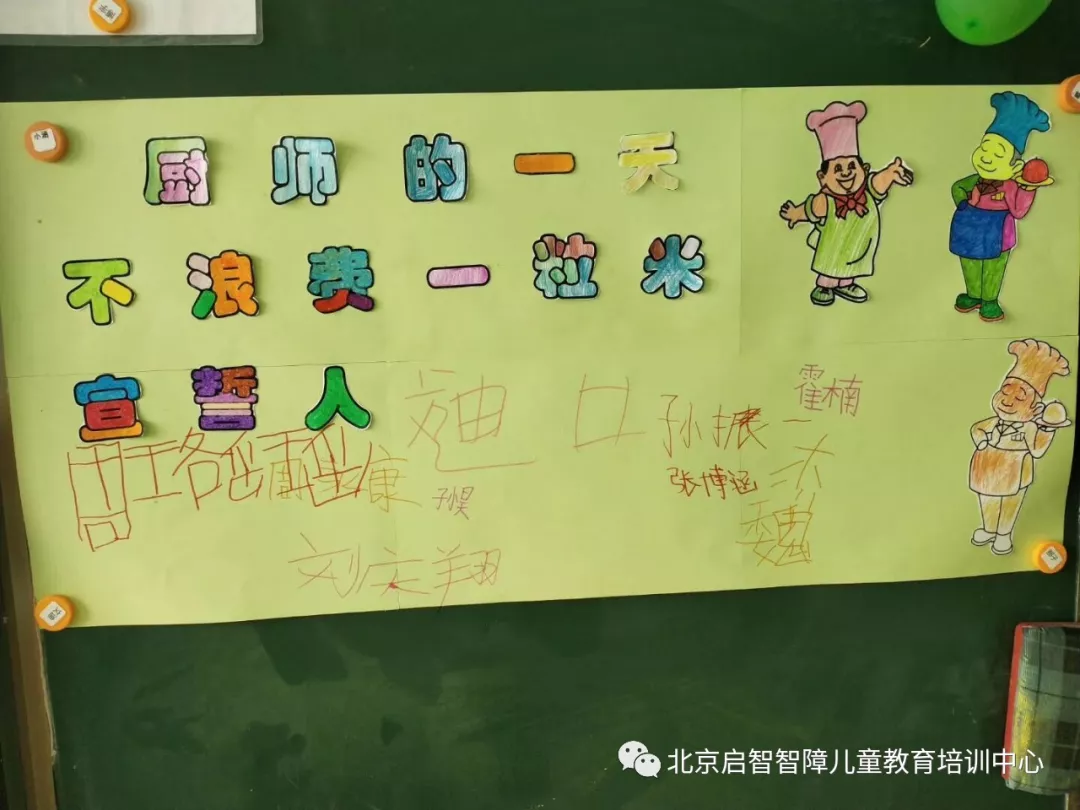 厨师的一天
不浪费一粒米
宣誓人
霍楠
孙振一
张博涵
康
孙昊
魏
刘庆翔
小涵
北京启智智障儿童教育培训中心